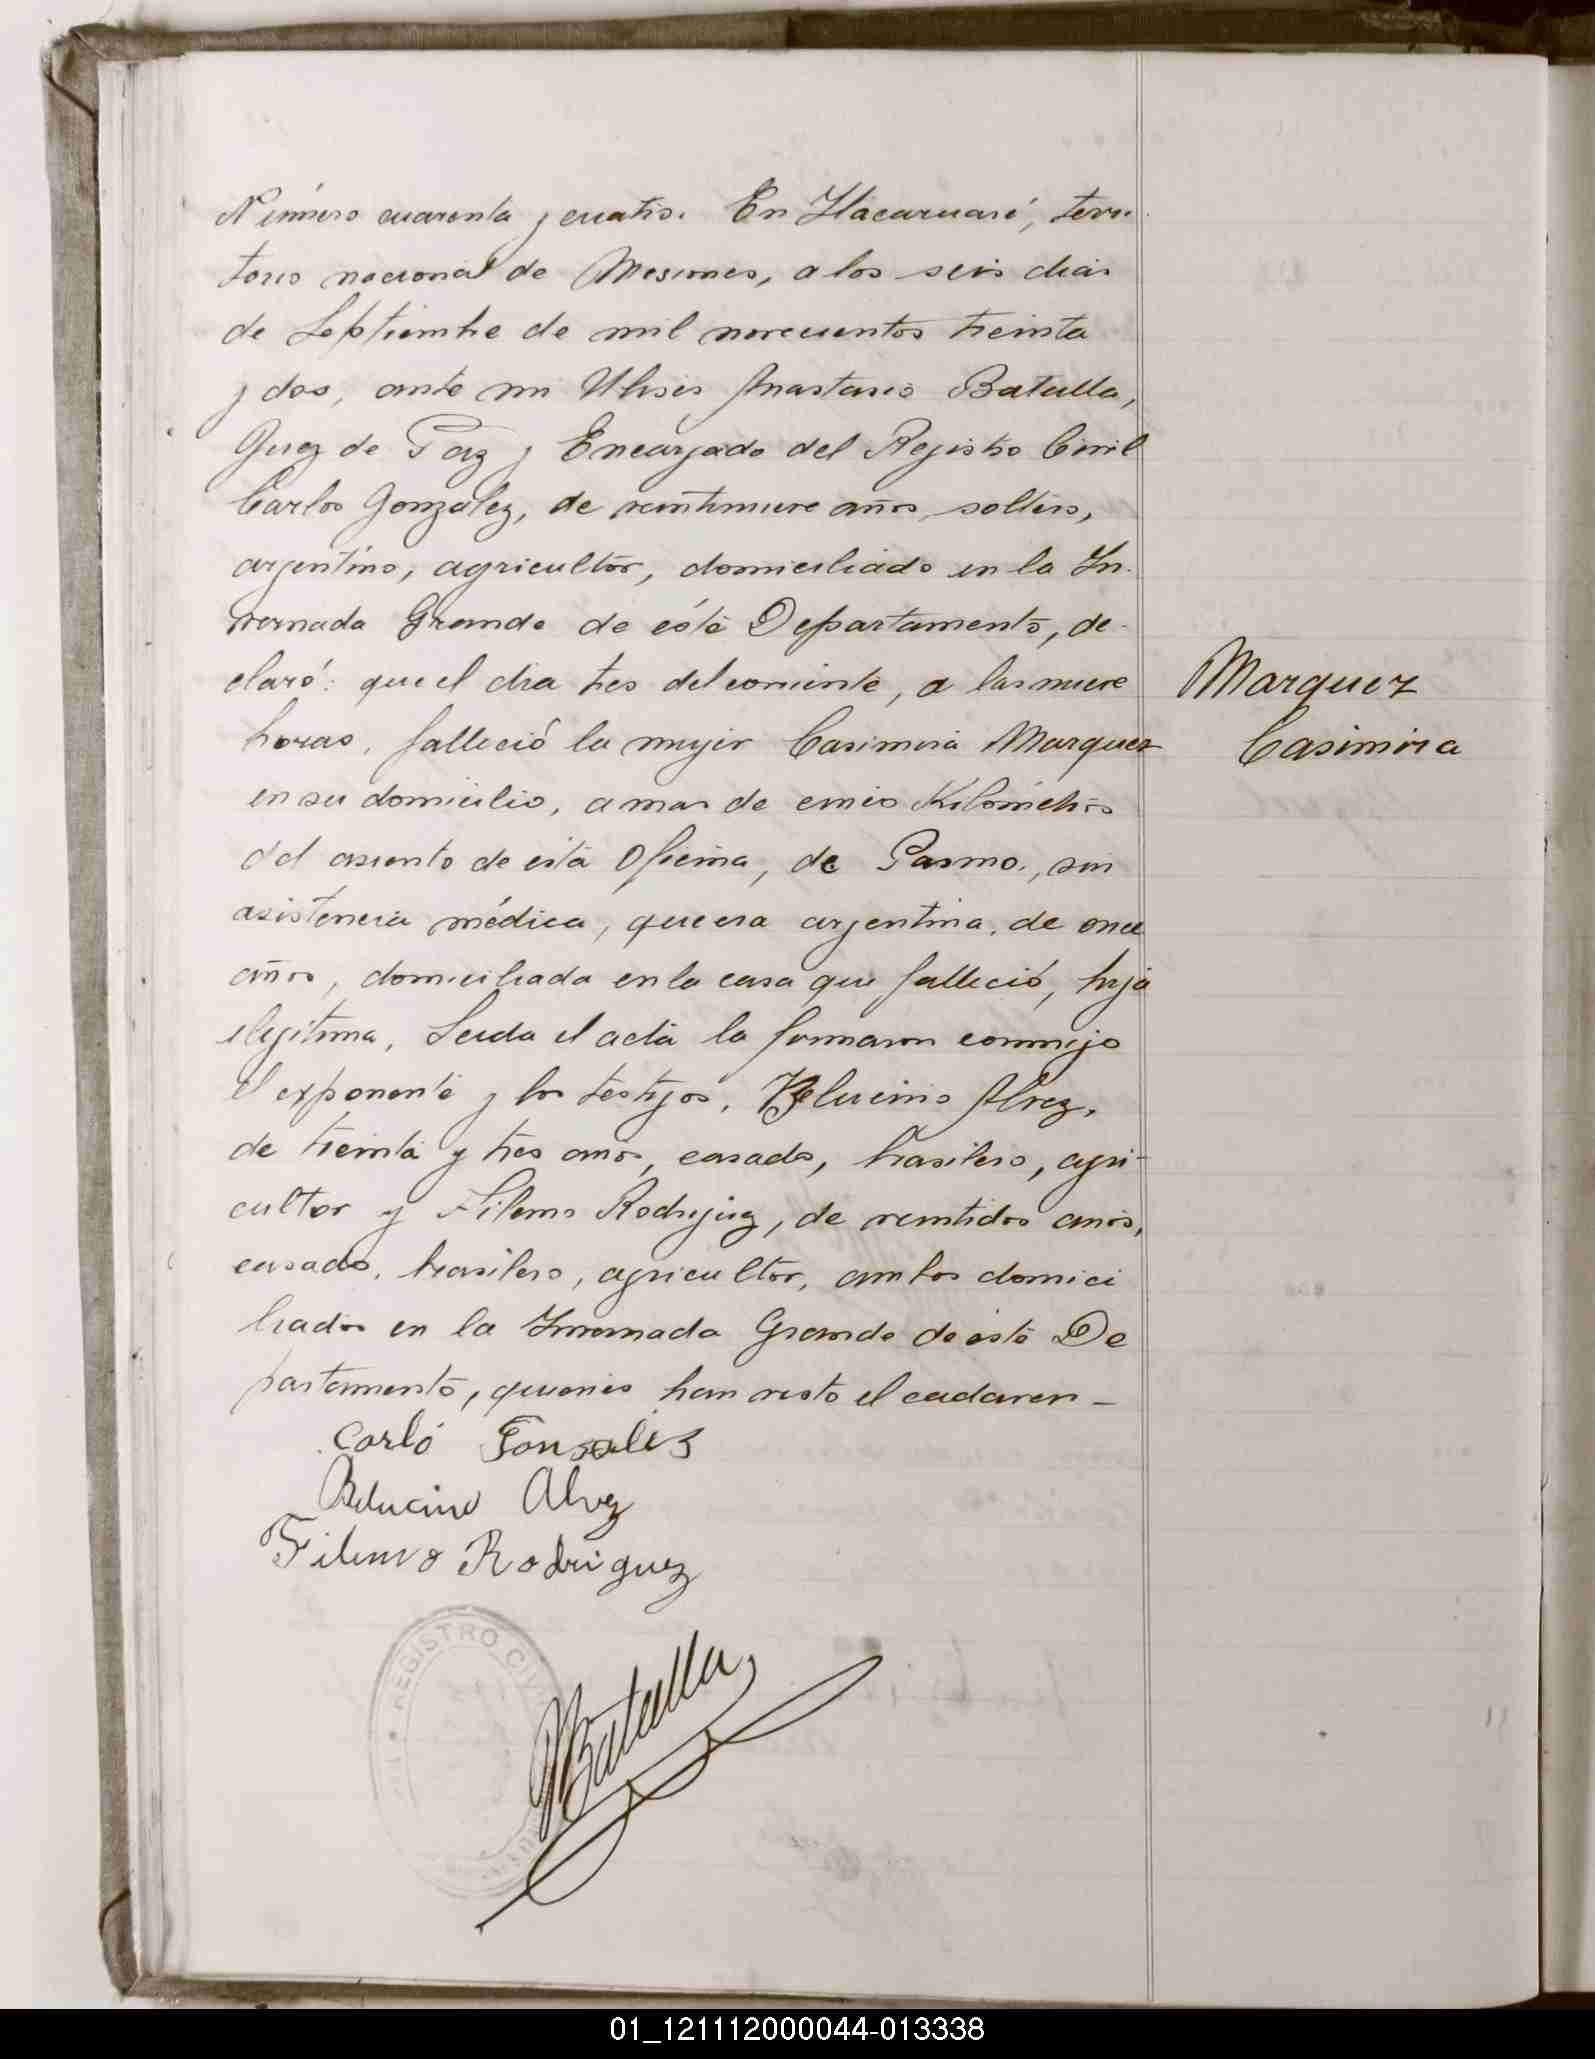 Número cuarenta y cuatro. En Itacaruaré, terri-
torio nacional de Misiones, a los seis dias
de Septiembre de mil novecientos treinta
y dos, ante mi Ulises Anastasio Batalla,
Juez de Paz y Encargado del Registro Civil
Carlos Gonzalez, de veintinueve años, soltero,
argentino, agricultor, domiciliado en la In-
vernada Grande de éste Departamento, de-
claró: que el dia tres del corriente, a las nueve
horas, falleció la mujer Casimira Marquez
en su domicilio, a mas de cinco Kilómetros
del asiento de esta Oficina, de Pasmo, sin
asistencia médica, que era argentina, de once
años, domiciliada en la casa que falleció, hija
ilegitima, Leida el acta la firmaron conmigo
el exponente y los testigos, Belucino Alvez,
de treinta y tres años, casado, brasilero, agri-
cultor y Fileno Rodriguez, de veintidos años,
casado, brasilero, agricultor, ambos domici
liados en la Invernada Grande de éste De
partamento, quienes han visto el cadaver—
Marquez
Casimira
Carlo Gonsales
Belucino Alvez
Fileno Rodriguez
REGISTRO CIVIL
Batalla
01_121112000044-013338